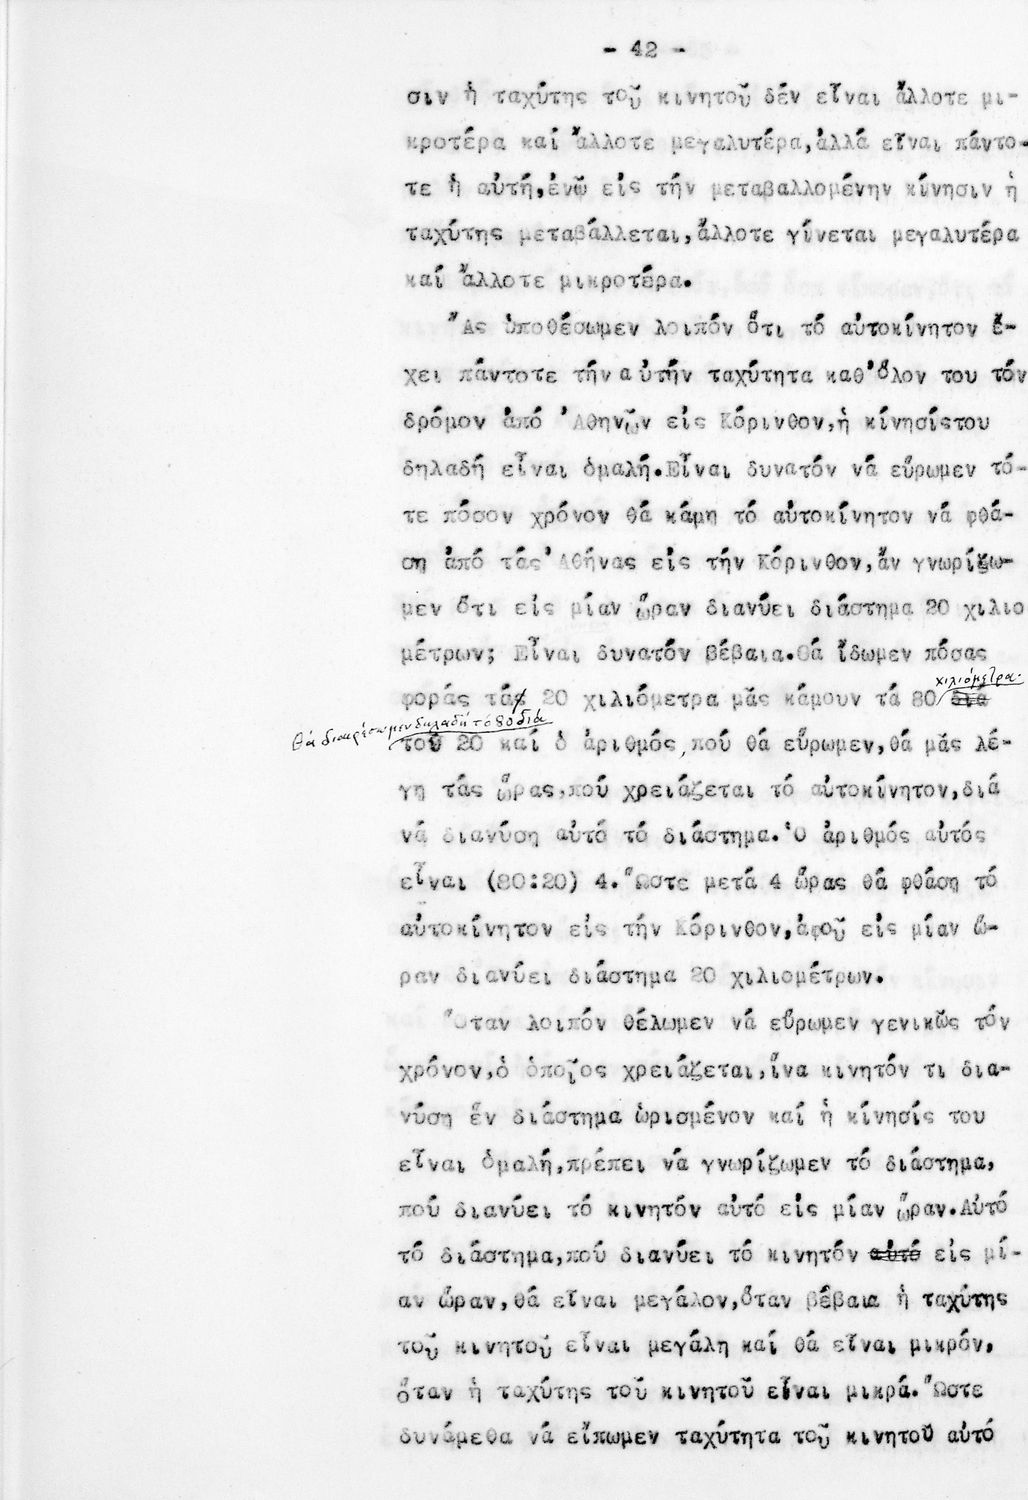 - 42 -
σιν ἡ ταχύτης τοῦ κινητοῦ δέν εἶναι ἄλλοτε μι-
κροτέρα καί ἄλλοτε μεγαλυτέρα,ἀλλά εἶναι πάντο-
τε ἡ αὐτή,ἐνῷ εἰς τήν μεταβαλλομένην κίνησιν ἡ
ταχύτης μεταβάλλεται,ἄλλοτε γίνεται μεγαλυτέρα
καί ἄλλοτε μικροτέρα.
Ἄς ὑποθέσωμεν λοιπόν ὅτι τό αὐτοκίνητον ἔ-
χει πάντοτε τήν αὐτήν ταχύτητα καθ'ὅλον του τόν
δρόμον ἀπό Ἀθηνῶν εἰς Κόρινθον,ἡ κίνησίςτου
δηλαδή εἶναι ὁμαλή.Εἶναι δυνατόν νά εὕρωμεν τό-
τε πόσον χρόνον θά κάμη τό αὐτοκίνητον νά φθά-
ση ἀπό τάς Ἀθήνας εἰς τήν Κόρινθον,ἄν γνωρίζω-
μεν ὅτι εἰς μίαν ὥραν διανύει διάστημα 20 χιλιο
μέτρων; Εἶναι δυνατόν βέβαια.Θά ἴδωμεν πόσας
χιλιόμετρα.
φοράς τά 20 χιλιόμετρα μᾶς κάμουν τά 80 διά
θά διαιρέσωμεν δηλαδή τό 80 διά
τοῦ 20 καί ὁ ἀριθμός,πού θά εὕρωμεν,θά μᾶς λέ-
γη τάς ὥρας,πού χρειάζεται τό αὐτοκίνητον,διά
νά διανύση αὐτό τό διάστημα.Ὁ ἀριθμός αὐτός
εἶναι (80:20) 4.Ὥστε μετά 4 ὥρας θά φθάση τό
αὐτοκίνητον εἰς τήν Κόρινθον,ἀφοῦ εἰς μίαν ὥ-
ραν διανύει διάστημα 20 χιλιομέτρων.
Ὅταν λοιπόν θέλωμεν νά εὕρωμεν γενικῶς τόν
χρόνον,ὁ ὁποῖος χρειάζεται,ἵνα κινητόν τι δια-
νύση ἕν διάστημα ὡρισμένον καί ἡ κίνησίς του
εἶναι ὁμαλή,πρέπει νά γνωρίζωμεν τό διάστημα,
πού διανύει τό κινητόν αὐτό εἰς μίαν ὥραν.Αὐτό
τό διάστημα,πού διανύει τό κινητόν αὐτό εἰς μί-
αν ὥραν,θά εἶναι μεγάλον,ὅταν βέβαια ἡ ταχύτης
τοῦ κινητοῦ εἶναι μεγάλη καί θά εἶναι μικρόν,
ὅταν ἡ ταχύτης τοῦ κινητοῦ εἶναι μικρά.Ὥστε
δυνάμεθα νά εἴπωμεν ταχύτητα τοῦ κινητοῦ αὐτό